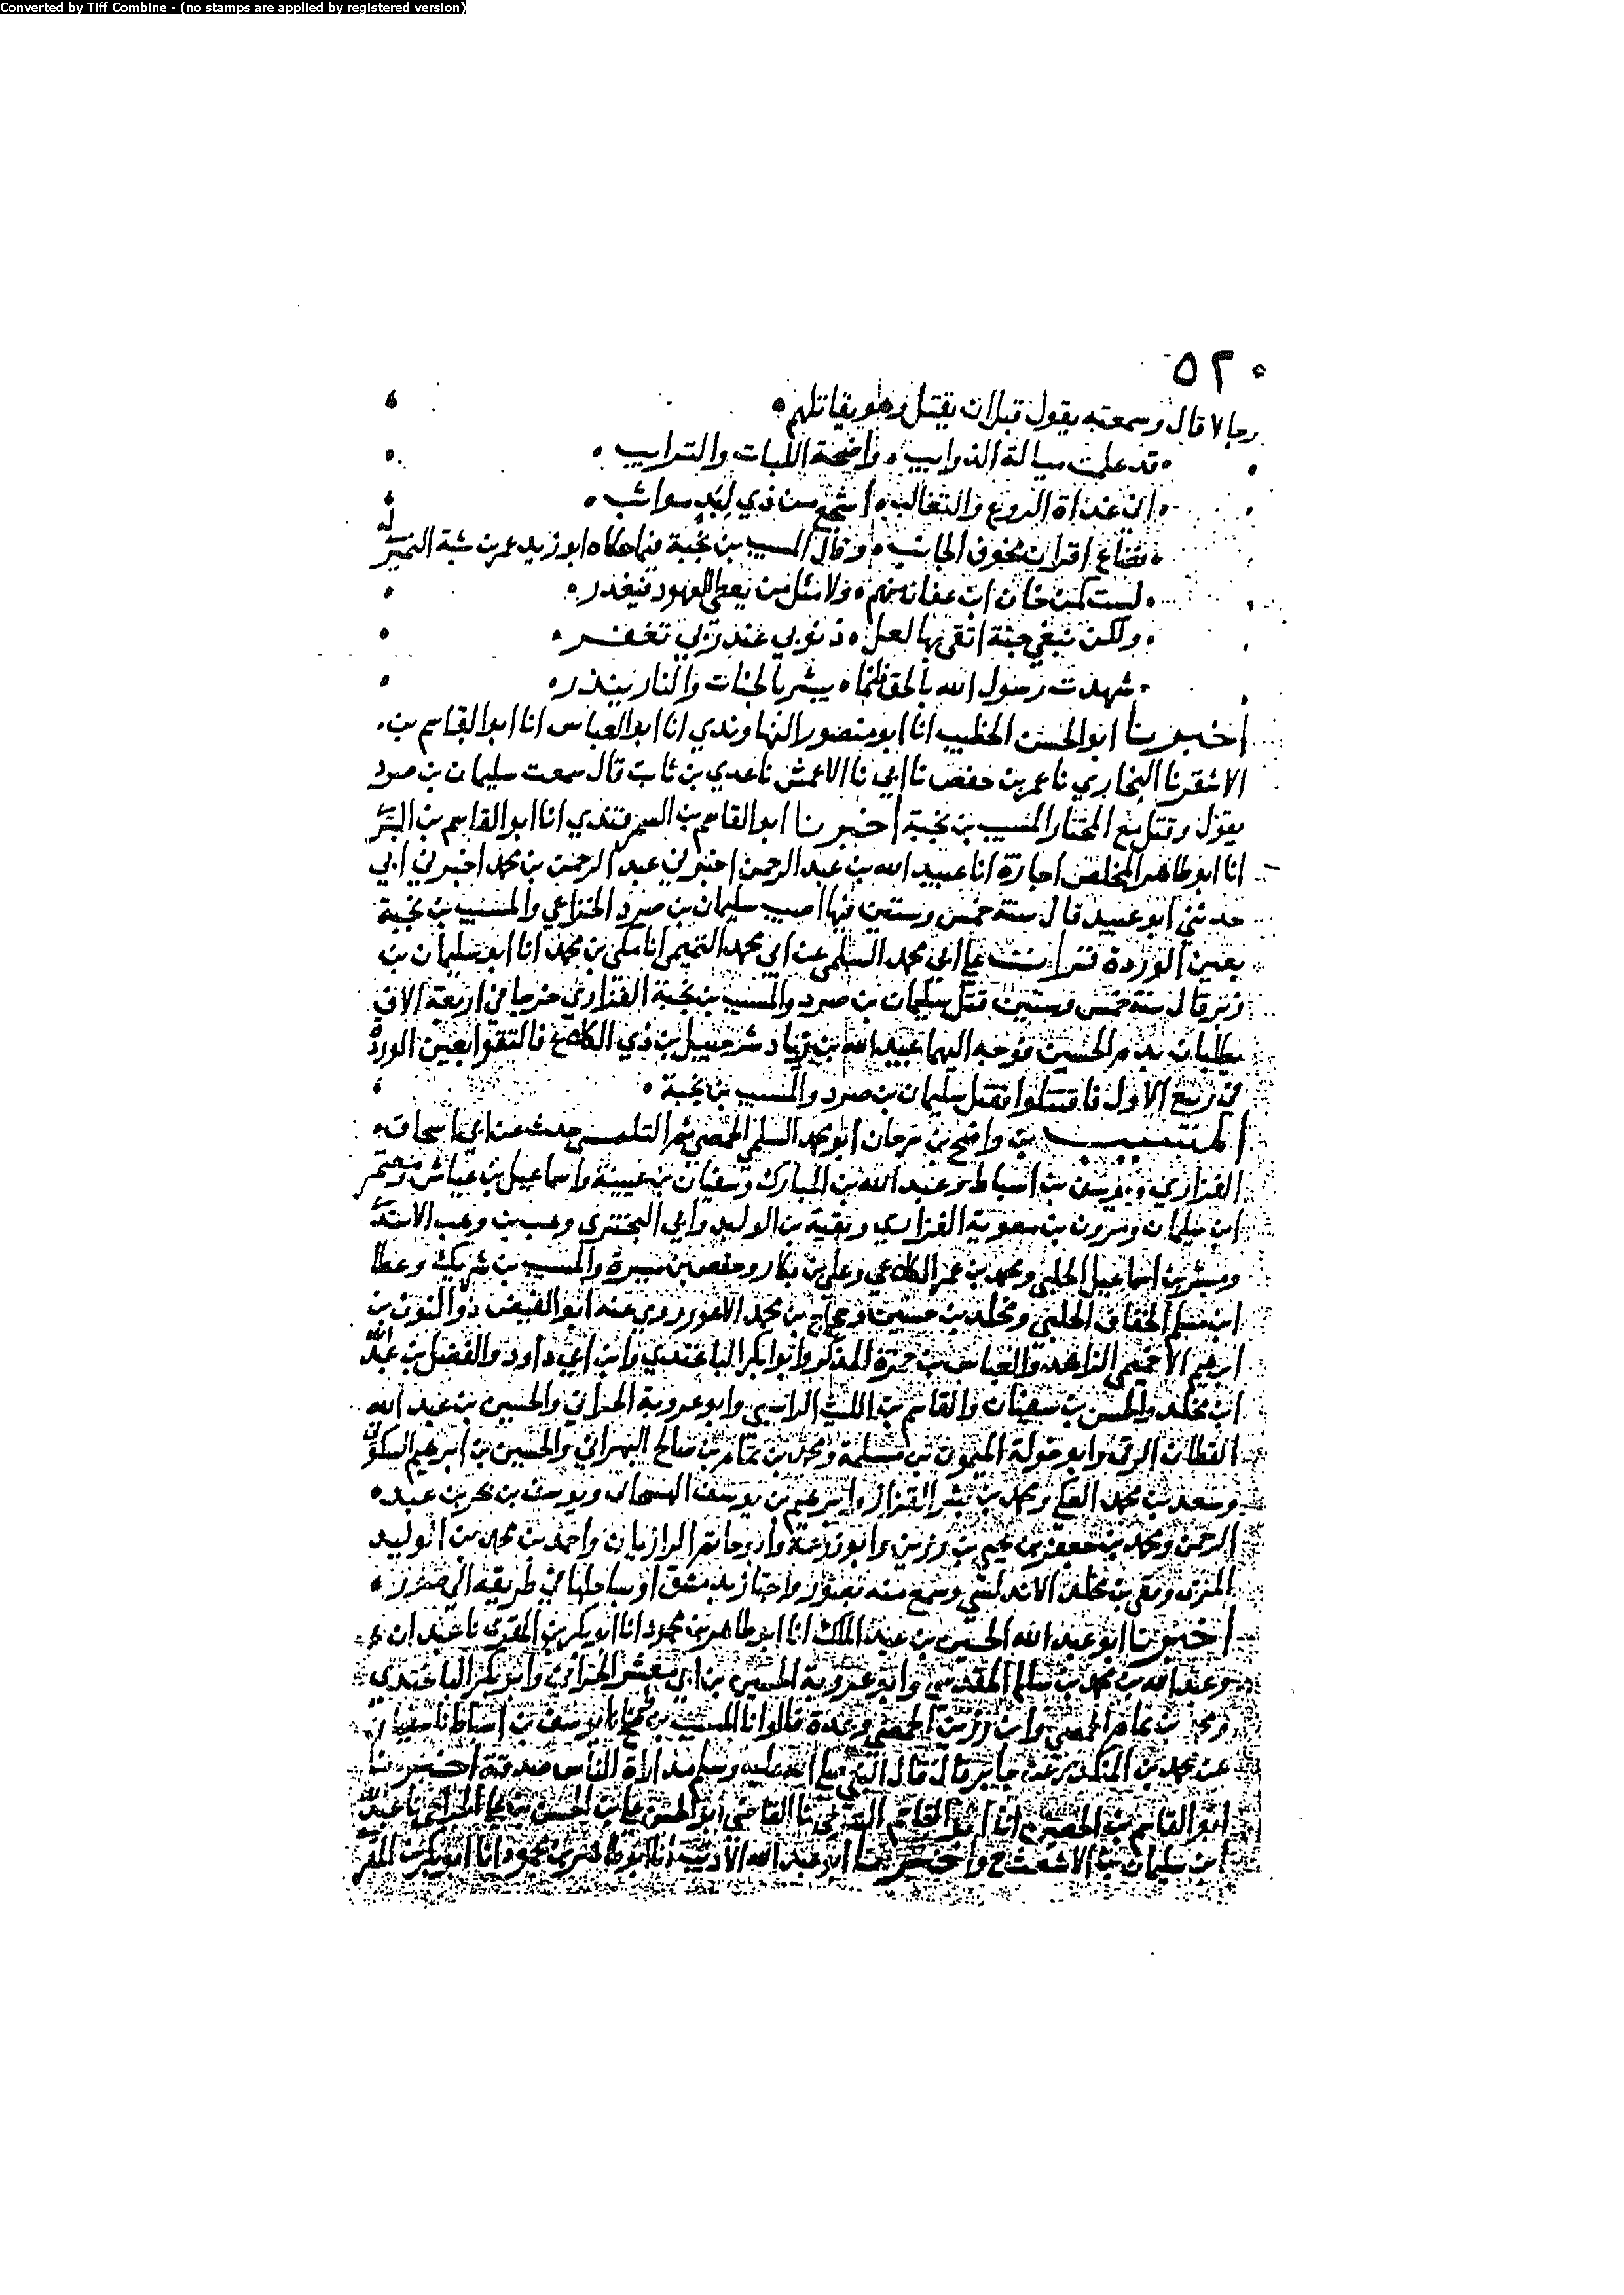 Converted by Tiff Combine - (no stamps are applied by registered version)
٥٢٠
رجالا قال وسمعته يقول قبل ان يقتل وهو يقاتلهم
قد علمت ميالة الذوايب واضحة اللبات والترايب
اني غداة الروع والتغالب اشجع من ذي لبد مواثب
قطاع اقران مخوف الجانب وقال المسيب بن نجبة فيما حكاه ابو زيد عمر بن شبة النميري له
لست كمن خان ابن عفان منهم ولا مثل من يعطي العهود فيغدر
ولكن نبغي جنة اتقى بها لعل ذنوبي عند ربي تغفر
شهدت رسول الله بالحق قائما يبشر بالجنات والنار ينذر
اخبرنا ابو الحسن الخطيب انا ابو منصور النهاوندي انا ابو العباس انا ابو القاسم بن
الاشقر نا البخاري نا عمر بن حفص نا ابي نا الاعمش نا عدي بن ثابت قال سمعت سليمان بن صرد
يقول وقتل مع المختار المسيب بن نجبة اخبرنا ابو القاسم بن السمرقندي انا ابو القاسم بن البسري
انا ابو طاهر المخلص اجازة انا عبيد الله بن عبد الرحمن اخبرني عبد الرحمن بن محمد اخبرني ابي
حدثني ابو عبيد قال سنة خمس وستين فيها اصيب سليمان بن صرد الخزاعي والمسيب بن نجبة
بعين الوردة قرات على ابي محمد السلمي عن ابي محمد التميمي انا مكي بن محمد انا ابو سليمان بن
زبر قال سنة خمس وستين قتل سليمان بن صرد والمسيب بن نجبة الفزاري خرجا في اربعة الاف
يطلبان بدم الحسين فوجه اليهما عبيد الله بن زياد شرحبيل بن ذي الكلاع فالتقوا بعين الوردة
في ربيع الاول فاقتتلوا فقتل سليمان بن صرد والمسيب بن نجبة
المسيب بن واضح بن سرحان ابو محمد السلمي الحمصي ثم التلمنسي حدث عن ابي اسحاق
الفزاري ويوسف بن اسباط وعبد الله بن المبارك وسفيان بن عيينة واسماعيل بن عياش ومعتمر
ابن سليمان ومروان بن معوية الفزاري وبقية بن الوليد وابي البختري وهب بن وهب الاسدي
ومبشر بن اسماعيل الحلبي ومحمد بن عمر الكلاعي وعلي بن بكار وحفص بن ميسرة والمسيب بن شريك وعطا
ابن مسلم الخفاف الحلبي ومخلد بن حسين وحجاج بن محمد الاعور روى عنه ابو الفيض ذو النون بن
ابرهيم الاخميمي الزاهد والعباس بن حمزة المذكر وابو بكر الباغندي وابن ابي داود والفضل بن عبد الله
ابن مخلد والحسن بن سفيان والقاسم بن الليث الراسبي وابو عروبة الحراني والحسين بن عبد الله
القطان الرقي وابو خولة الميمون بن مسلمة ومحمد بن تمام بن صالح البهراني والحسين بن ابرهيم السكوني
وسعد بن محمد العكي ومحمد بن بشر القزاز وابرهيم بن يوسف الهسنجاني ويوسف بن بحر بن عبد
الرحمن ومحمد بن جعفر بن يحيى بن رزين وابو زرعة وابو حاتم الرازيان واحمد بن محمد بن الوليد
المري وبقي بن مخلد الاندلسي وسمع منه بصور واجتاز بدمشق او بساحلها في طريقه الى صور
اخبرنا ابو عبد الله الحسين بن عبد الملك انا ابو طاهر بن محمود انا ابو بكر بن المقرئ نا عبدان
وعبد الله بن محمد بن سلم المقدسي وابو عروبة الحسين بن ابي معشر الحراني وابو بكر الباغندي
ومحمد بن تمام الحمصي وابن رزين الحمصي وعدة قالوا نا المسيب بن واضح نا يوسف بن اسباط نا سفيان
عن محمد بن المنكدر عن جابر قال قال النبي صلى الله عليه وسلم مداراة الناس صدقة اخبرنا
ابو القاسم بن الحصين انا ابو القاسم التنوخي نا القاضي ابو الحسن علي بن الحسن بن علي الجراحي نا عبد الله
ابن سليمان بن الاشعث ح واخبرنا ابو عبد الله الاديب انا ابو طاهر بن محمود انا ابو بكر بن المقرئ